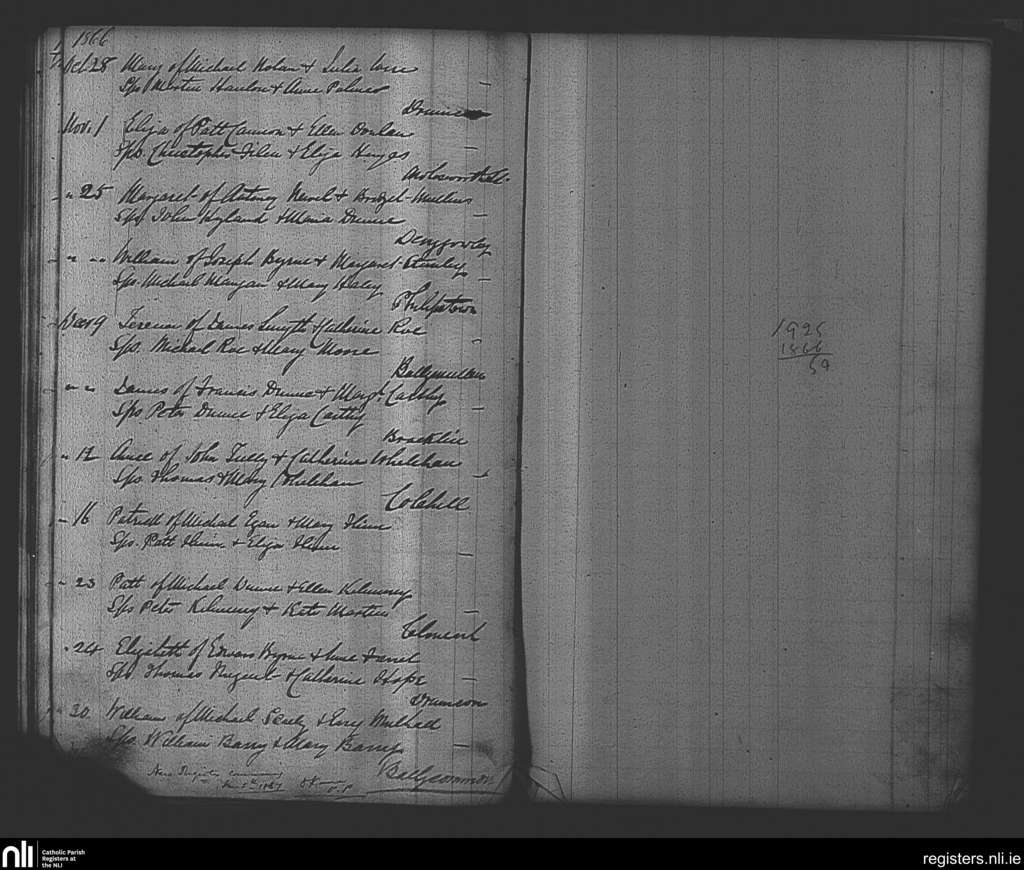 1866
Oct 28 Mary of Michael Nolan & Julia
Sps Martin Hanlon & Anne Palmer
Nov. 1 Eliza of Patt Cannon & Ellen Donlan
Sps. Christopher & Eliza Hayes
" 25 Margaret of Antony & Bridget Mullins
Sps John Hyland & Maria Dunne
Derrygowley
" " William of Joseph Byrne & Margaret
Sps. Michael Mangan & Mary Haley
Philipstown
Decr 9 Terence of James Smyth & Catherine Roe
Sps. Michael Roe & Mary Moore
Ballymullen
" " James of Francis Dunne & Margt. Carthy
Sps Peter Dunne & Eliza Carthy
Bracklin
" 12 Anne of John Tully & Catherine Whelehan
Sps Thomas & Mary Whelehan
Colehill
" 16 Patrick of Michael Egan & Mary
Sps. Patt & Eliza
" 23 Patt of Michael Dunne & Ellen Kilmurry
Sps Peter Kilmurry & Kate Martin
" 24 Elizabeth of Edward Byrne & Anne Farrel
Sps Thomas Nugent & Catherine Hope
" 30 William of Michael & Mulhall
Sps. William Barry & Mary Barry
Ballycommon
New Register commencing
Jan 1867 P.P.
1925
1866
59
nli Catholic Parish
Registers at
the NLI
registers.nli.ie